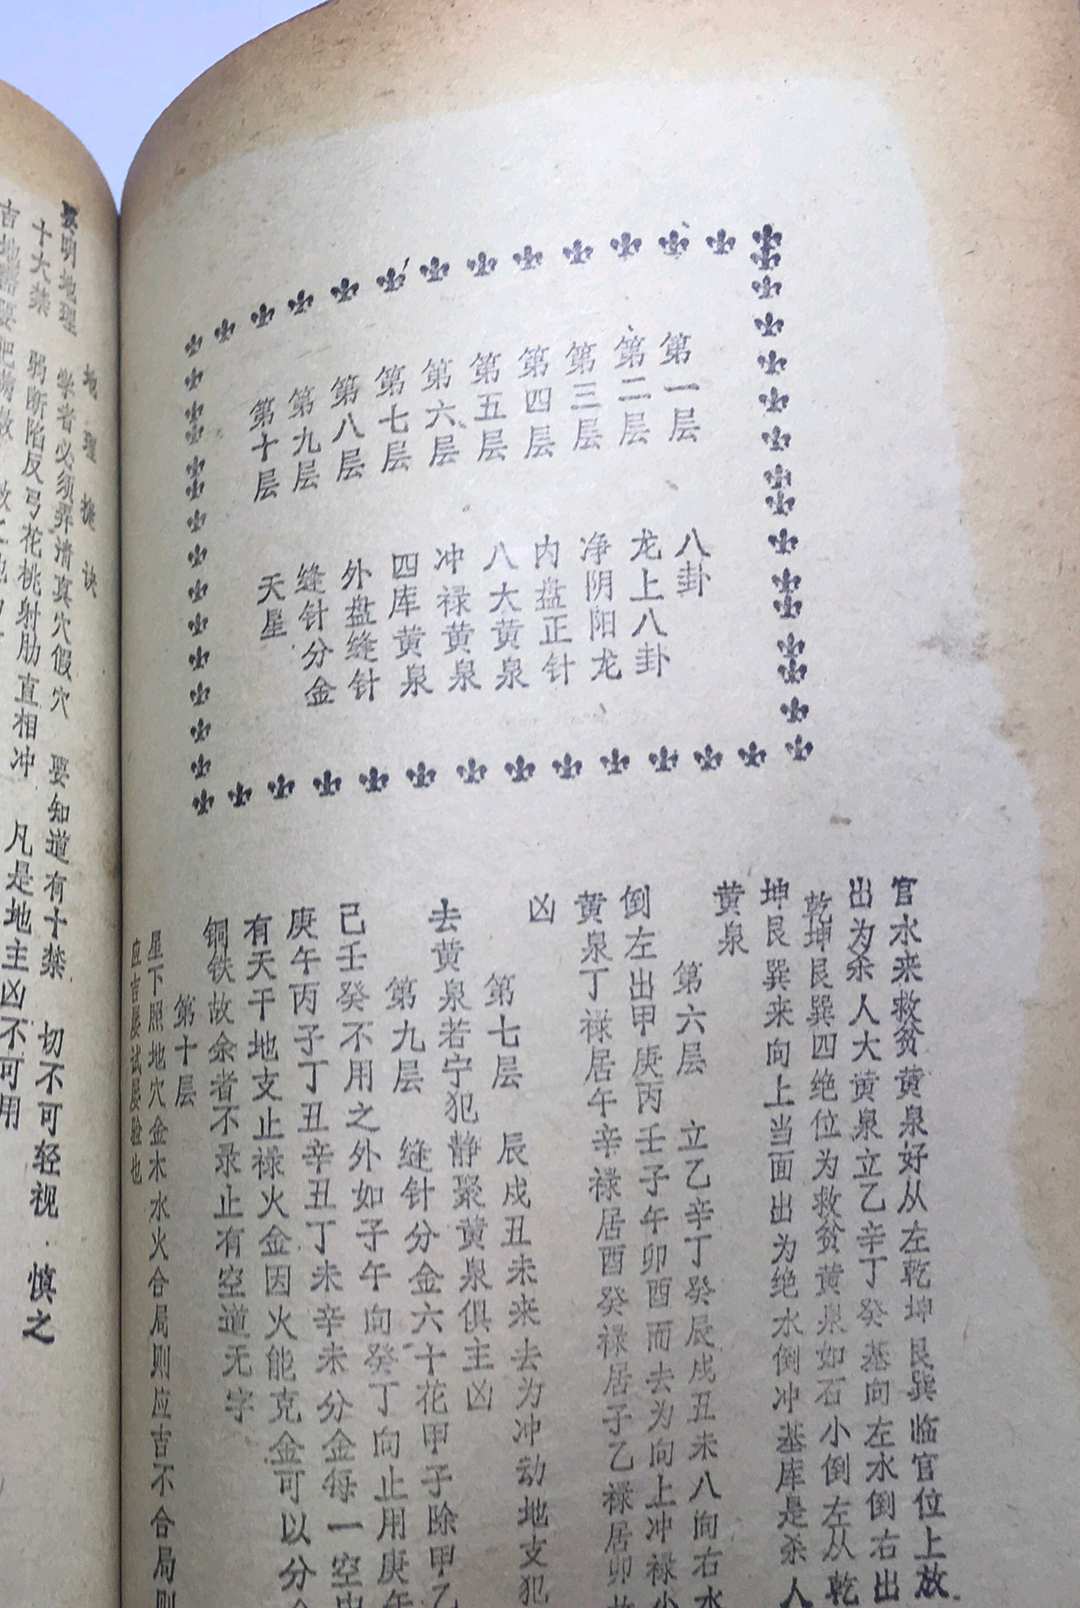 第一层 八卦
第二层 龙上八卦
第三层 净阴阳龙
第四层 内盘正针
第五层 八大黄泉
第六层 冲禄黄泉
第七层 四库黄泉
第八层 外盘缝针
第九层 缝针分金
第十层 天星
官水来救贫黄泉好从左乾坤艮巽临官位上放
出为杀人大黄泉立乙辛丁癸基向左水倒右出
乾坤艮巽四绝位为救贫黄泉如石小倒左从乾
坤艮巽来向上当面出为绝水倒冲基库是杀人
黄泉
第六层 立乙辛丁癸辰戌丑未八向右水
倒左出甲庚丙壬子午卯酉而去为向上冲禄小
黄泉丁禄居午辛禄居酉癸禄居子乙禄居卯故
凶
第七层 辰戌丑未来去为冲动地支犯
去黄泉若宁犯静聚黄泉俱主凶
第九层 缝针分金六十花甲子除甲乙
己壬癸不用之外如子午向癸丁向止用庚午
庚午丙子丁丑辛丑丁未辛未分金每一空中
有天干地支止禄火金因火能克金可以分金
铜铁故余者不录止有空道无字
第十层
星下照地穴金木水火合局则应吉不合局则
应吉屡试屡验也
地理捷诀
要明地理 学者必须弄清真穴假穴 要知道有十禁 切不可轻视 慎之
十大禁 弱断陷反弓花桃射肋直相冲 凡是地主凶不可用